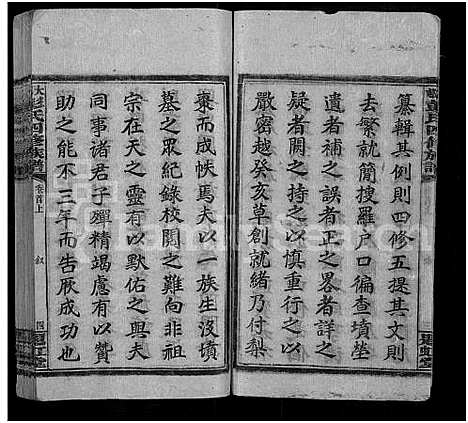 纂輯其例則四修五提其文則
去繁就簡搜羅户口徧查墳塋
遺者補之誤者正之畧者詳之
疑者闕之以慎重行之以
嚴密越癸亥草創就緒乃付梨
棗而成帙焉夫以一族生沒墳
墓之眾紀錄校閱之難向非祖
宗在天之靈有以默佑之與夫
同事諸君子殫精竭慮有以贊
助之能不三年而告厥成功也
彭氏四修族譜
卷首上
叙
四